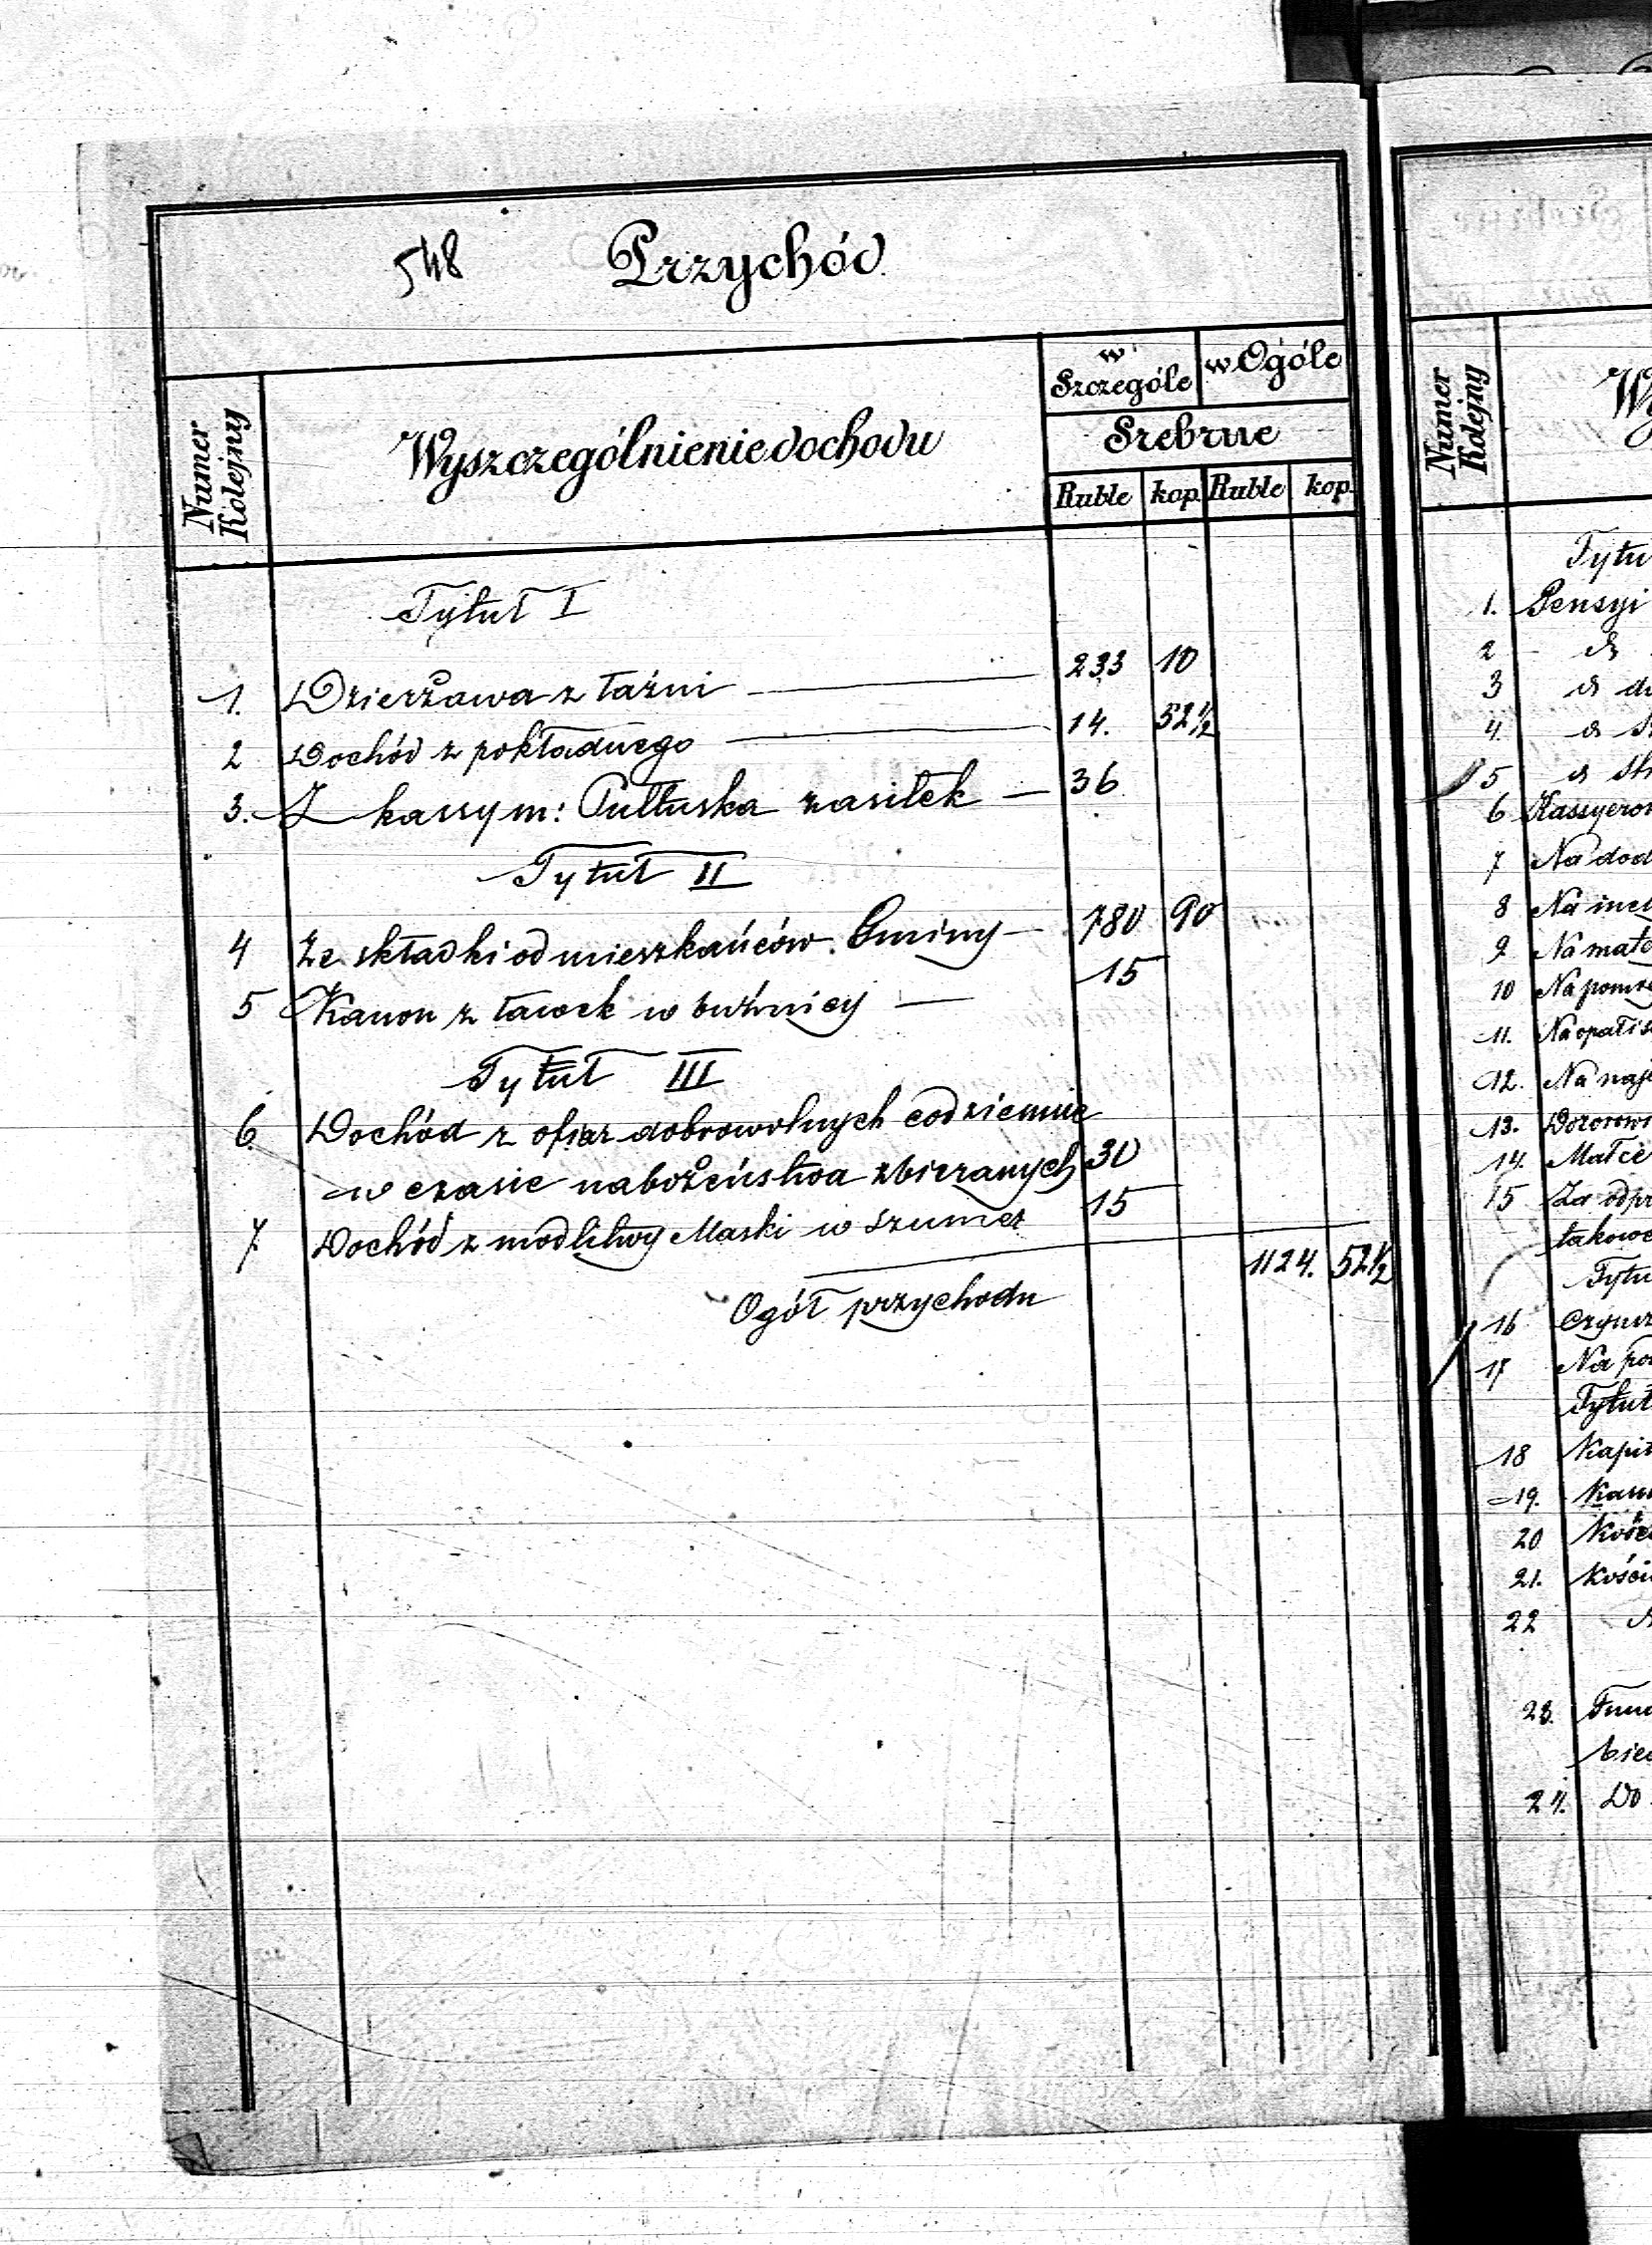 548 Przychód
Numer Kolejny
Wyszczególnienie dochodu
w Szczególe
w Ogóle
Srebrne
Ruble kop. Ruble kop.
Tytuł I
1. Dzierżawa z łaźni 233 10
2 Dochód z pokładnego 14. 52 1/2
3. Z kassy m: Pułtuska zasiłek 36
Tytuł II
4 Ze składki od mieszkańców Gminy 780 90
5 Kanon z ławek w bużnicy 15
Tytuł III
6 Dochód z ofiar dobrowolnych codziennie
w czasie nabożeństwa zbieranych 30
7 Dochód z modlitwy Maski w Szumer 15
Ogół przychodu 1124. 52 1/2
Numer Kolejny
Wy
Tytu
1. Pensyi
2
3
4.
5
6 Kassyerow
7 Na dod
8
9 Na mate
10
11. Na opał i
12. Na naj
13. Dozorowi
14.
15 Za odpr
takowe
Tytu
16
17 Na po
Tytuł
18 Kapit
19.
20
21. Kości
22
23.
24. Do